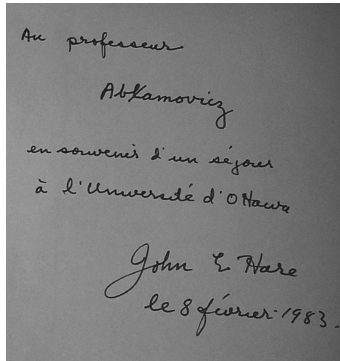 Au professeur
Abkamovicz
en souvenir d'un séjour
à l'Université d'Ottawa
John E Hare
le 8 février 1983.